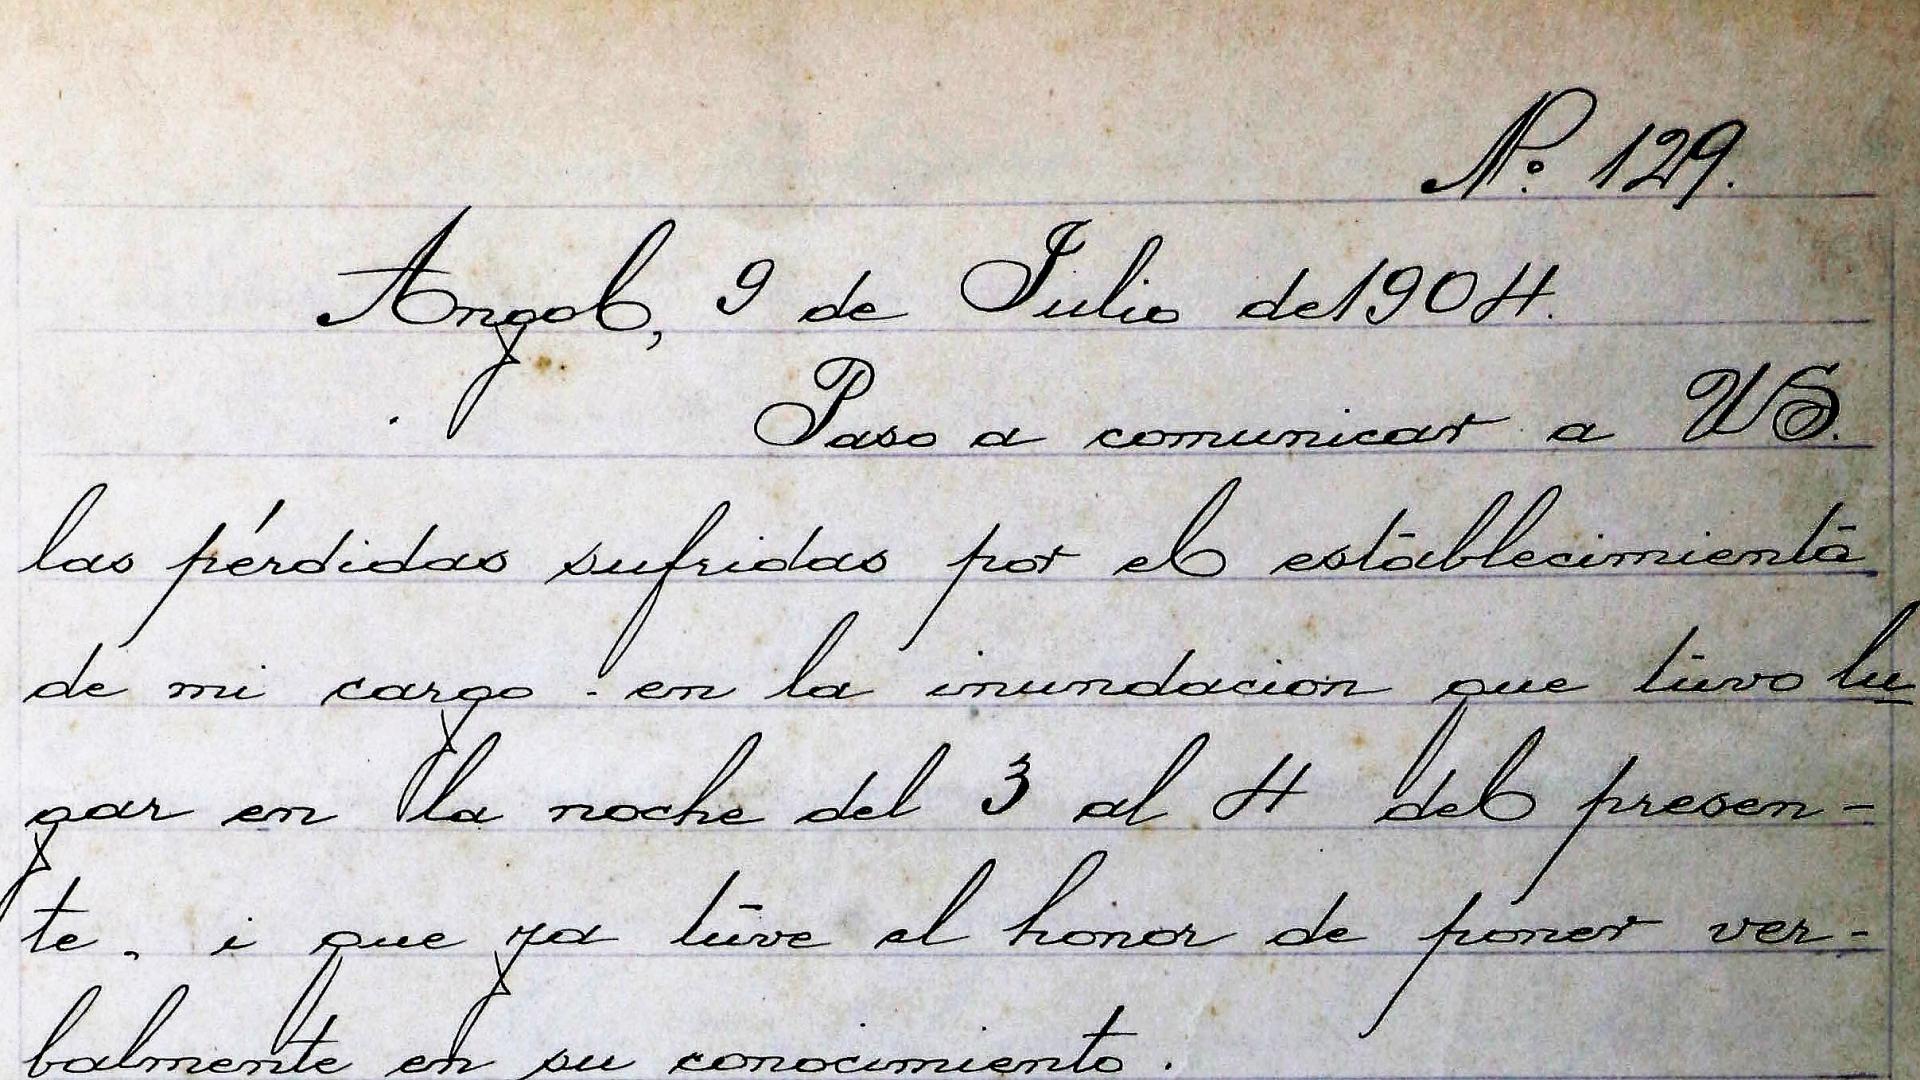 Nº 129.
Angol, 9 de Julio de 1904.
Paso a comunicar a US.
las pérdidas sufridas por el establecimiento
de mi cargo en la inundacion que tuvo lu
gar en la noche del 3 al 4 del presen-
te, i que ya tuve el honor de poner ver-
balmente en su conocimiento.